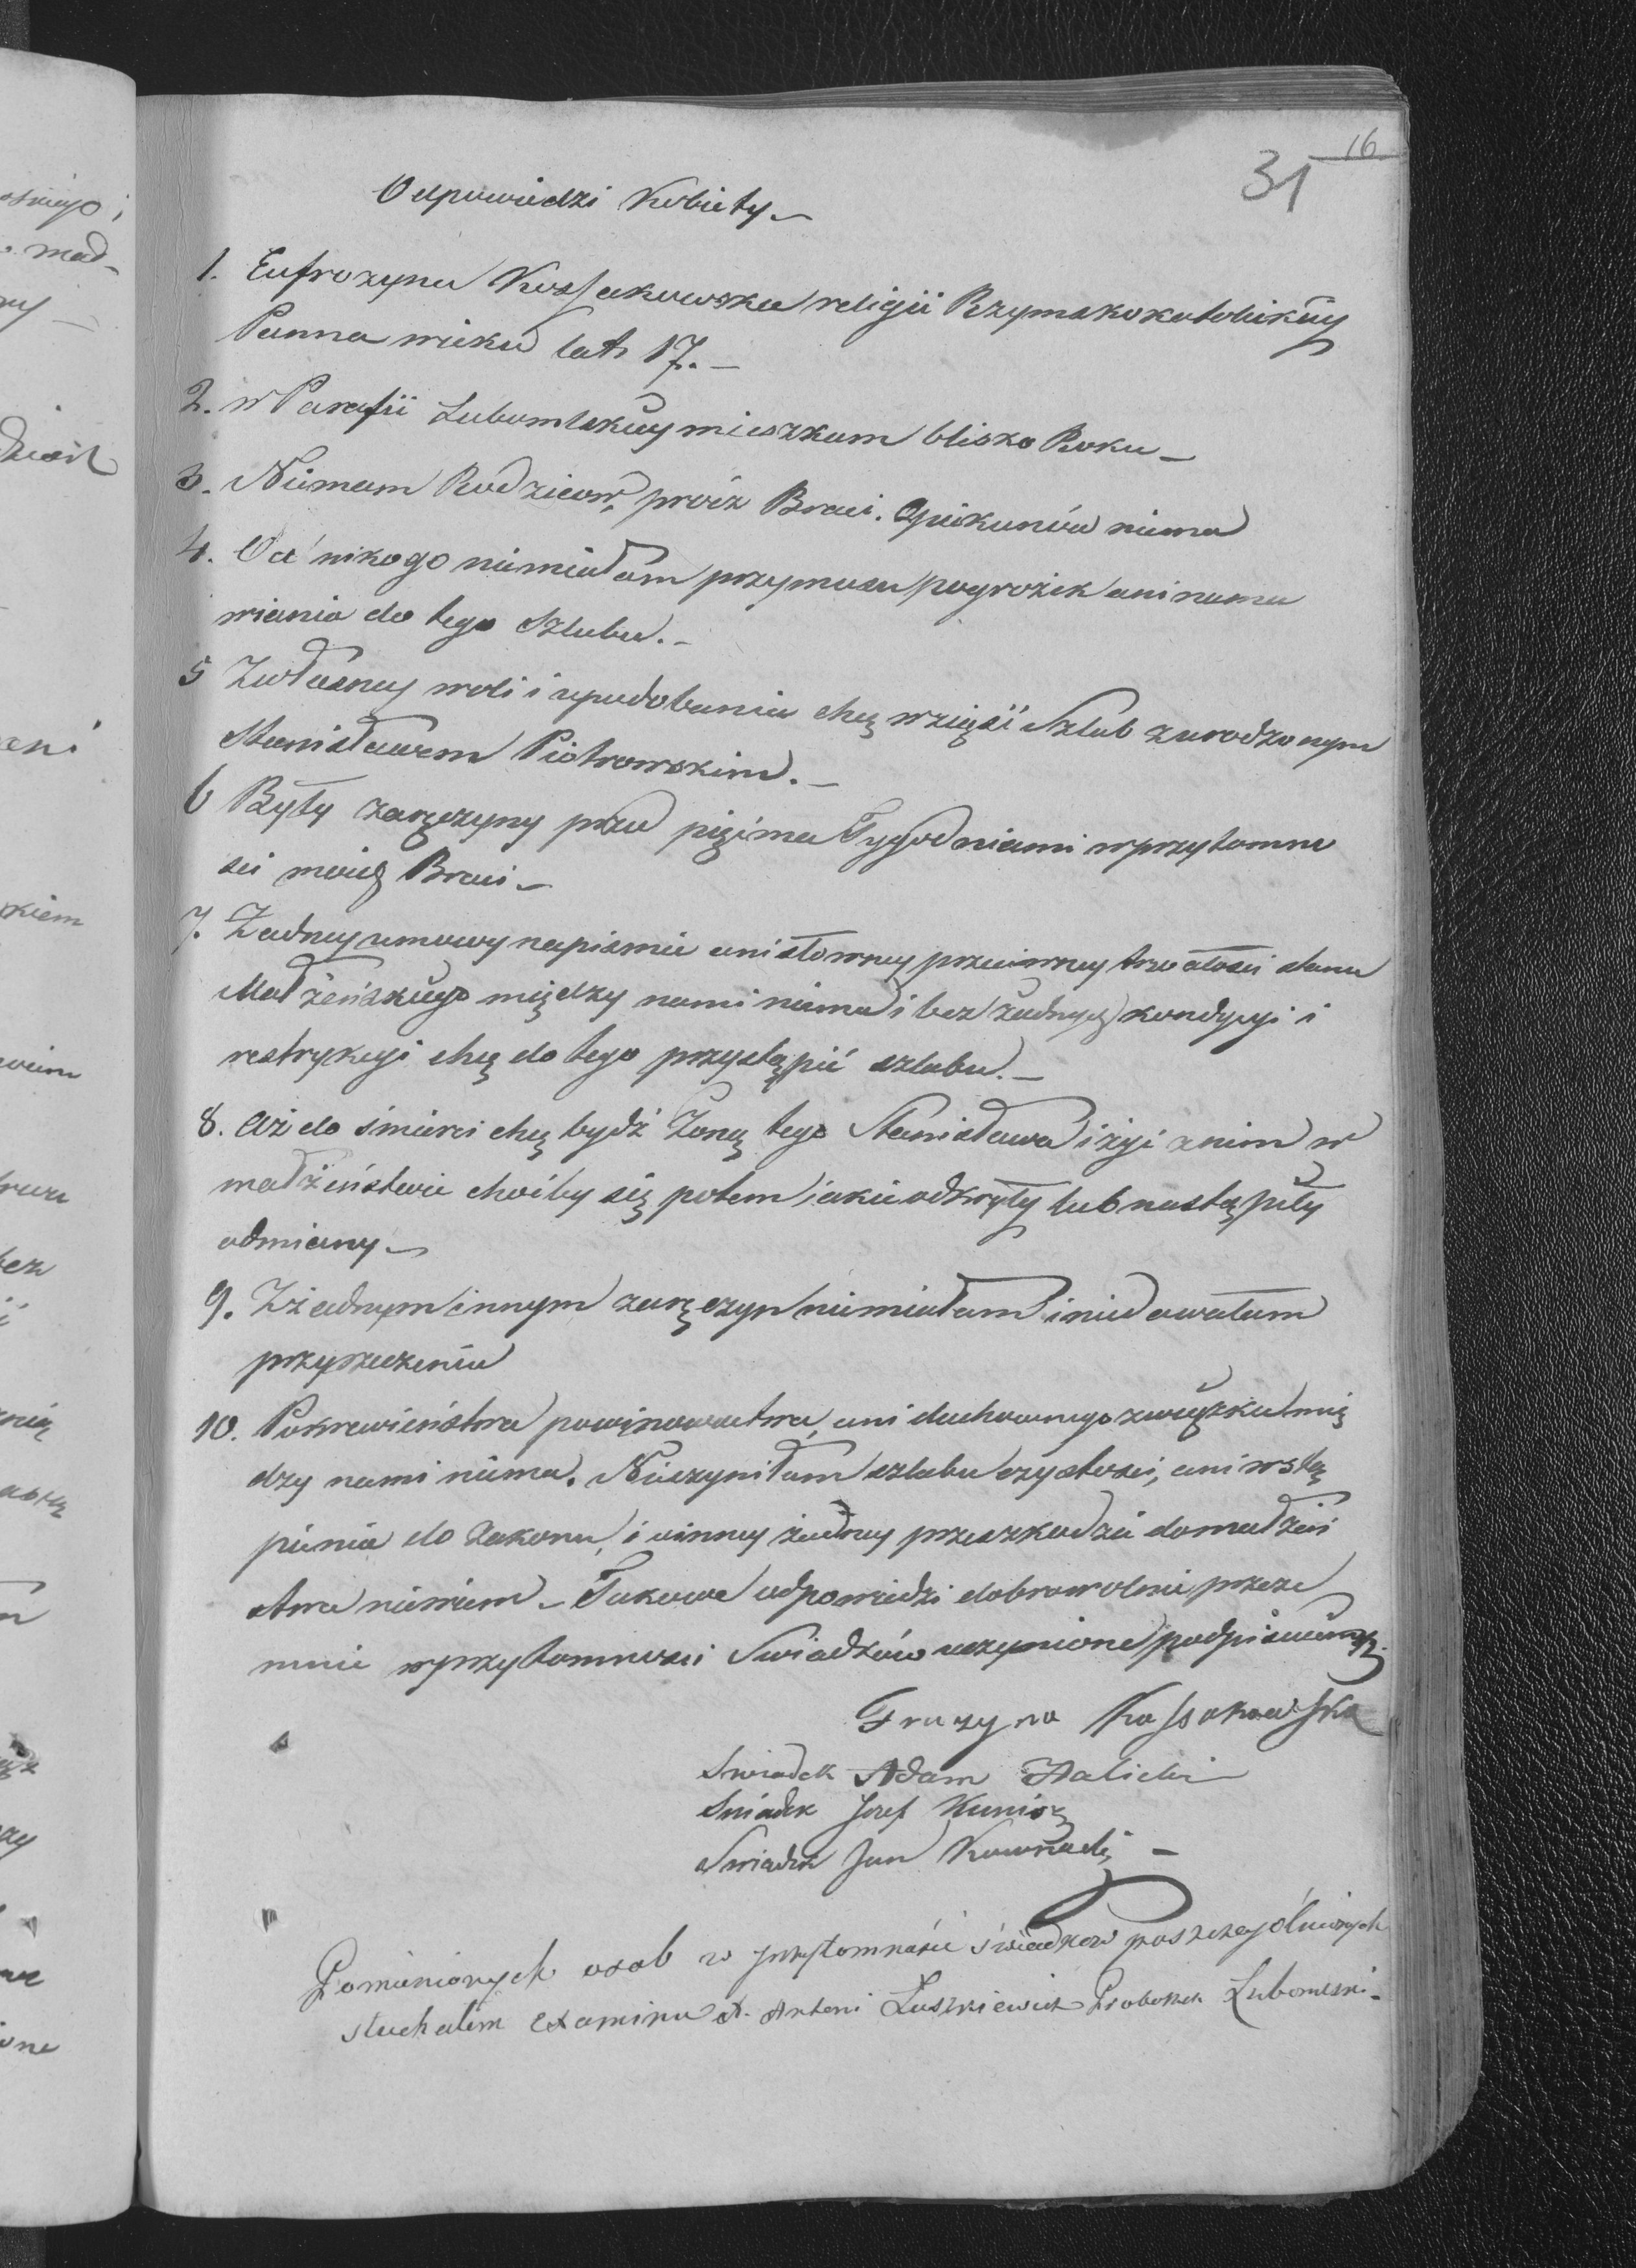 16
31
Odpowiedzi Kobiety
1. Eufrozyna Kossakowska religii Rzymskokatolickiey
Panna wieku lat 17.
2. w Parafii Lubomlskiey mieszkam blisko Roku
3. Niemam Rodziców, prócz Braci. Opiekunów niema
4. Od nikogo niemiałam przymusu pogrożek ani nama
wiania do tego szlubu.
5 Zwłasney woli i upodobania chcę wziąść Szlub zurodzonym
Stanisławem Piotrowskim.
6 Były zaręczyny przed pięcima Tygodniami wprzytomno
sci moich Braci
7. Żadney umowy napismie ani słowney przeciwney trwałosci stanu
Małżeńskiego między nami niema i bez żadnych kondycyi i
restrykcyi chcę do tego przystąpić szlubu.
8. Aż do śmierci chcę bydź Żoną tego Stanisława i żyć znim w
małżeństwie choćby się potem jakie odkryły lub nastąpiły
odmiany
9. Z żadnym innym zaręczyn niemiałam i niedawałam
przyrzeczenia
10. Pokrewieństwa powinowactwa, ani duchownego związku mię
dzy nami niema. Nieczyniłam szlubu czystosci, ani wstą
pienia do Zakonu, i inney żadney przeszkodzie domałżeń
stwa niewiem Takowe odpowiedzi dobrowolnie przeze
mnie wprzytomnosci Swiadków uczynione podpisuię
Fruzyna Kossakowska
Swiadek Adam Halicki
Swiadek Jozef
Swiadek Jan
Pomienionych osob w przytomnośći świadków poszczegolnionych
słuchałem Examinu X. Antoni Luszkiewicz Proboszcz Lubomlski